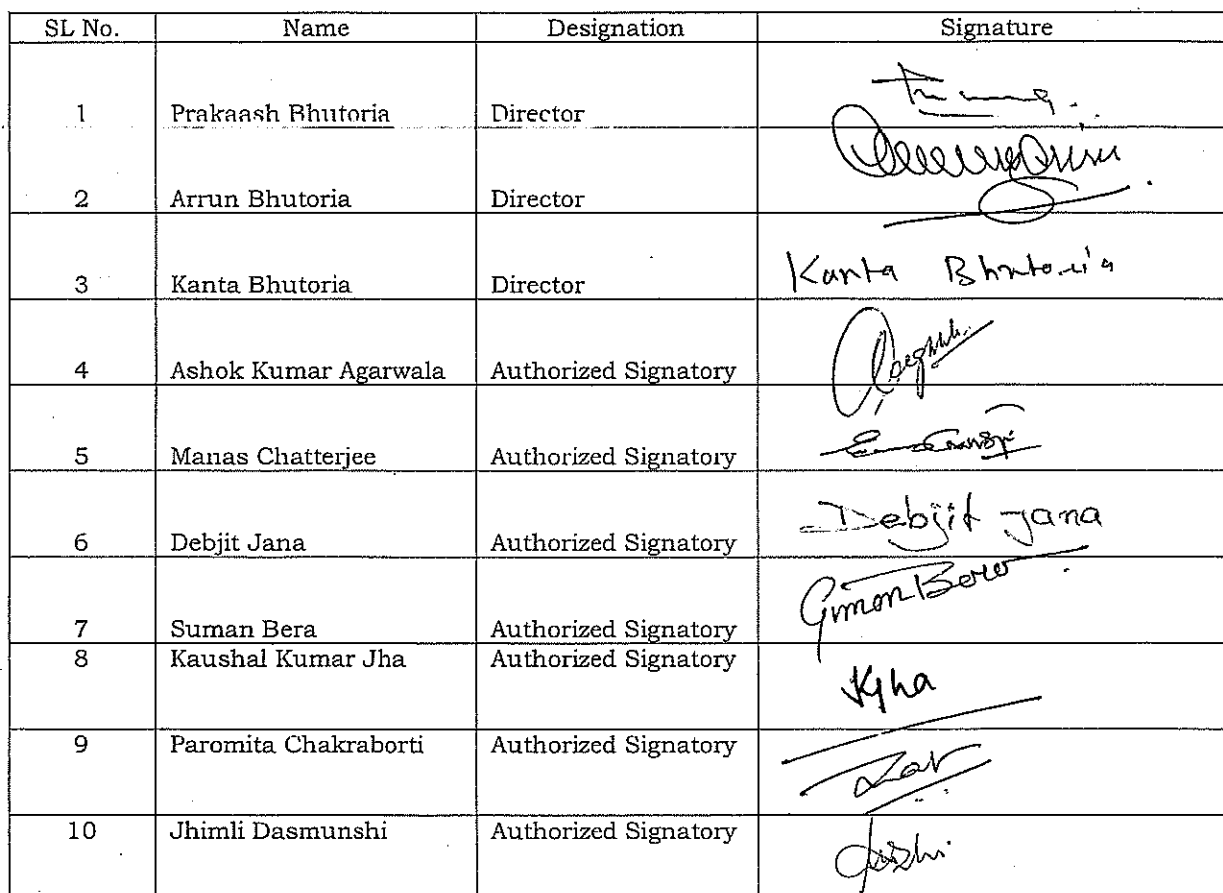 SL No. Name Designation Signature
1 Prakaash Bhutoria Director
2 Arrun Bhutoria Director
3 Kanta Bhutoria Director Kanta Bhutoria
4 Ashok Kumar Agarwala Authorized Signatory
5 Manas Chatterjee Authorized Signatory
6 Debjit Jana Authorized Signatory Debjit Jana
7 Suman Bera Authorized Signatory
8 Kaushal Kumar Jha Authorized Signatory KJha
9 Paromita Chakraborti Authorized Signatory
10 Jhimli Dasmunshi Authorized Signatory